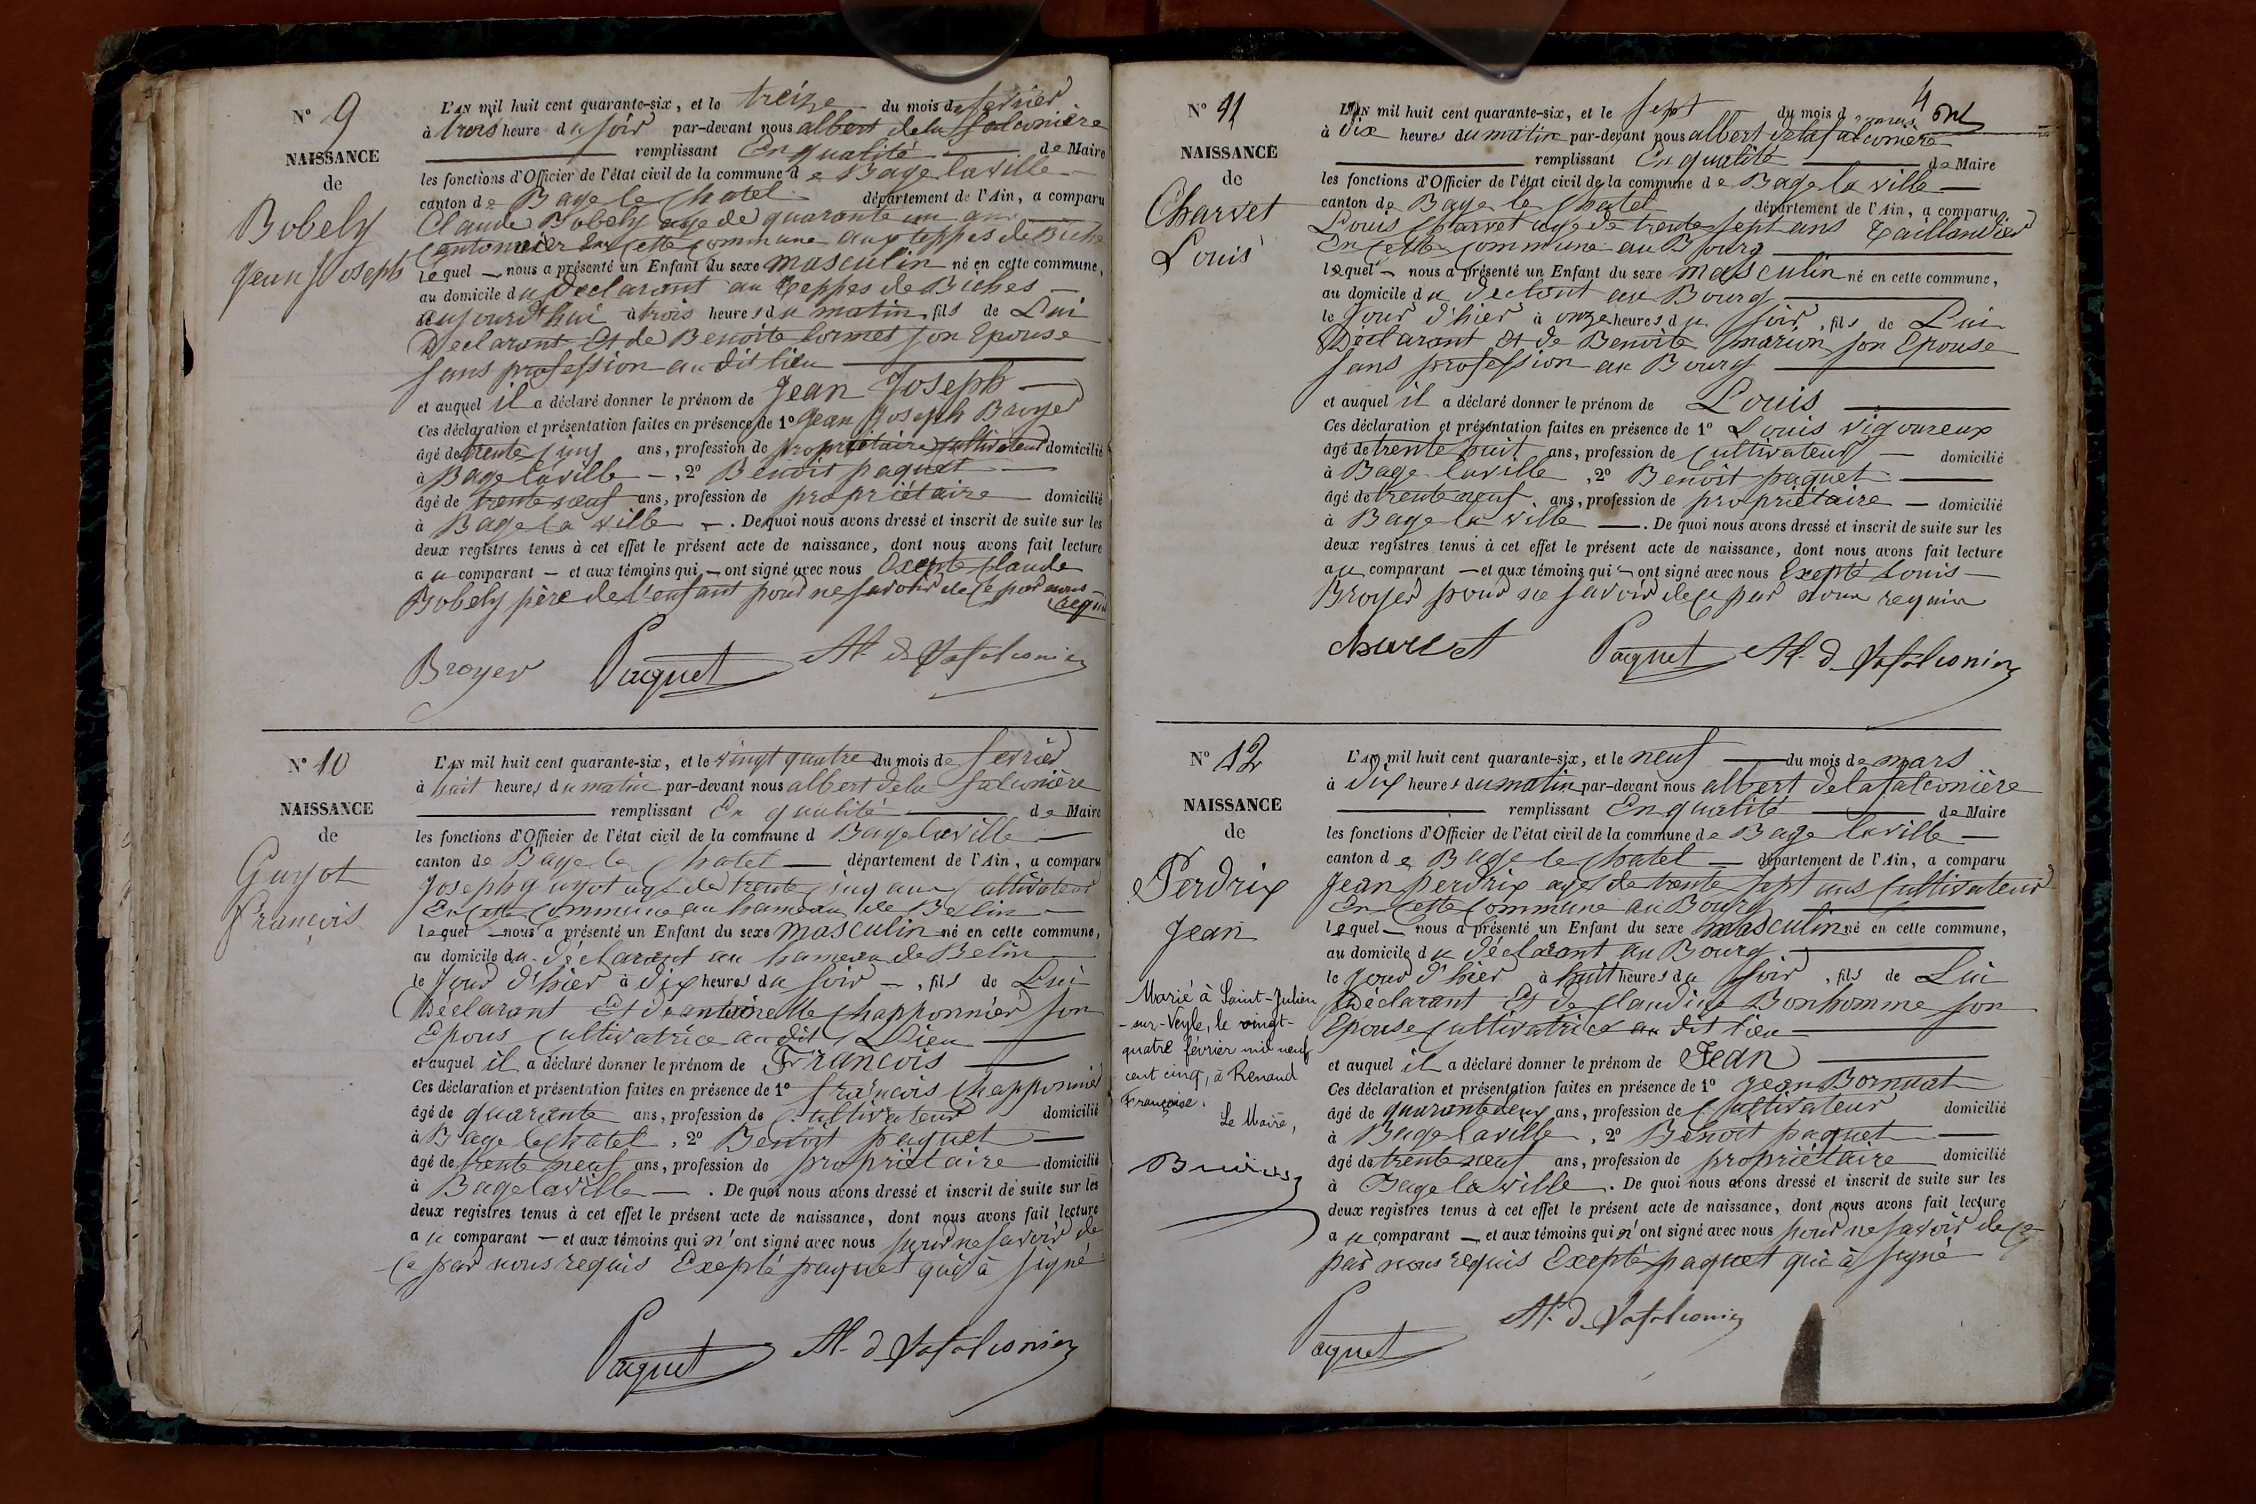 N° 9
NAISSANCE
de
Bobely
Jean Joseph
L'AN mil huit cent quarante-six, et le treize du mois de fevrier
à trois heure du soir par-devant nous albert dela falconière
remplissant En qualité de Maire
les fonctions d'Officier de l'état civil de la commune de Bage laville
canton de Bage le Chatel département de l'Ain, a comparu
Claude Bobely age de quarante un ans
Cantonnier En Cette Commune aux teppes de Biche
lequel nous a présenté un Enfant du sexe masculin né en cette commune,
au domicile du Declarant au teppes de Biches
aujourd'hui à trois heures du matin, fils de Lui
Declarant Et de Benoite Cormet son Epouse
sans profession au dit lieu
et auquel il a déclaré donner le prénom de Jean Joseph
Ces déclaration et présentation faites en présence de 1° Jean Joseph Broyer
âgé de trente Cinq ans, profession de propriétaire Cultivateur domicilié
à Bage laville, 2° Benoit paquet
âgé de trente neuf ans, profession de propriétaire domicilié
à Bage la ville. De quoi nous avons dressé et inscrit de suite sur les
deux registres tenus à cet effet le présent acte de naissance, dont nous avons fait lecture
au comparant et aux témoins qui ont signé avec nous Excepté Claude
Bobely père de l'enfant pour ne savoir de Ce par nous
requis
Broyer Paquet Al. d Lafalconière
N° 10
NAISSANCE
de
Guyot
François
L'AN mil huit cent quarante-six, et le vingt quatre du mois de fevrier
à huit heures du matin par-devant nous albert dela falconière
remplissant En qualité de Maire
les fonctions d'Officier de l'état civil de la commune d Bage laville
canton de Bage le Chatel département de l'Ain, a comparu
Joseph guyot agé de trente Cinq ans Cultivateur
En Cette Commune au hameau de Beslin
lequel nous a présenté un Enfant du sexe masculin né en cette commune,
au domicile du déclarant au hameau de Belin
le Jour d'hier à dix heures du soir, fils de Lui
Déclarant Et de antoinette Chapponnier son
Epous Cultivatrice au dit Lieu
et auquel il a déclaré donner le prénom de François
Ces déclaration et présentation faites en présence de 1° françois Chapponnier
âgé de quarante ans, profession de Cultivateur domicilié
à Bage le Chatel, 2° Benoit paquet
âgé de trente neuf ans, profession de propriétaire domicilié
à Bage laville. De quoi nous avons dressé et inscrit de suite sur les
deux registres tenus à cet effet le présent acte de naissance, dont nous avons fait lecture
au comparant et aux témoins qui n'ont signé avec nous pour ne savoir de
Ce par nous requis Exepté paquet qui à signé
Paquet Al. d Lafalconière
4
N° 11
NAISSANCE
de
Charvet
Louis
L'AN mil huit cent quarante-six, et le sept du mois d mars
à dix heures du matin par-devant nous albert delafalconière
remplissant En qualité de Maire
les fonctions d'Officier de l'état civil de la commune de Bage la ville
canton de Bage le Chatel département de l'Ain, a comparu
Louis Charvet age de trente sept ans taillandier
En Cette Commune au Bourg
lequel nous a présenté un Enfant du sexe masculin né en cette commune,
au domicile du au Bourg
le Jour d'hier à onze heures du soir, fils de Lui
Déclarant Et de Benoite marion son Epouse
sans profession au Bourg
et auquel il a déclaré donner le prénom de Louis
Ces déclaration et présentation faites en présence de 1° Louis vigoureux
âgé de trente huit ans, profession de Cultivateur domicilié
à Bage laville, 2° Benoit paquet
âgé de trente neuf ans, profession de propriétaire domicilié
à Bage la ville. De quoi nous avons dressé et inscrit de suite sur les
deux registres tenus à cet effet le présent acte de naissance, dont nous avons fait lecture
au comparant et aux témoins qui ont signé avec nous Excepté Louis
Broyer pour ne savoir de Ce par nous requis
Charvet Paquet Al. d Lafalconière
N° 12
NAISSANCE
de
Perdrix
Jean
Marié à Saint-Julien
-sur-Veyle, le vingt-
quatre février mil neuf
cent cinq, à Renaud
Françoise.
Le Maire,
L'AN mil huit cent quarante-six, et le neuf du mois de mars
à dix heures du matin par-devant nous albert delafalconière
remplissant En qualité de Maire
les fonctions d'Officier de l'état civil de la commune de Bage laville
canton de Bage le Chatel département de l'Ain, a comparu
Jean perdrix agé de trente sept ans Cultivateur
En Cette Commune au Bourg
lequel nous a présenté un Enfant du sexe masculin né en cette commune,
au domicile du déclarant au Bourg
le Jour d'hier à huit heures du soir, fils de Lui
Déclarant Et de Claudine Bonhomme son
Epouse Cultivatrice au dit lieu
et auquel il a déclaré donner le prénom de Jean
Ces déclaration et présentation faites en présence de 1° Jean Bornuat
âgé de quarante deux ans, profession de Cultivateur domicilié
à Bage laville, 2° Benoit paquet
âgé de trente neuf ans, profession de propriétaire domicilié
à Bage la ville. De quoi nous avons dressé et inscrit de suite sur les
deux registres tenus à cet effet le présent acte de naissance, dont nous avons fait lecture
au comparant et aux témoins qui n'ont signé avec nous pour ne savoir de Ce
par nous requis Excepté paquet qui à signé
Paquet Al. d Lafalconière